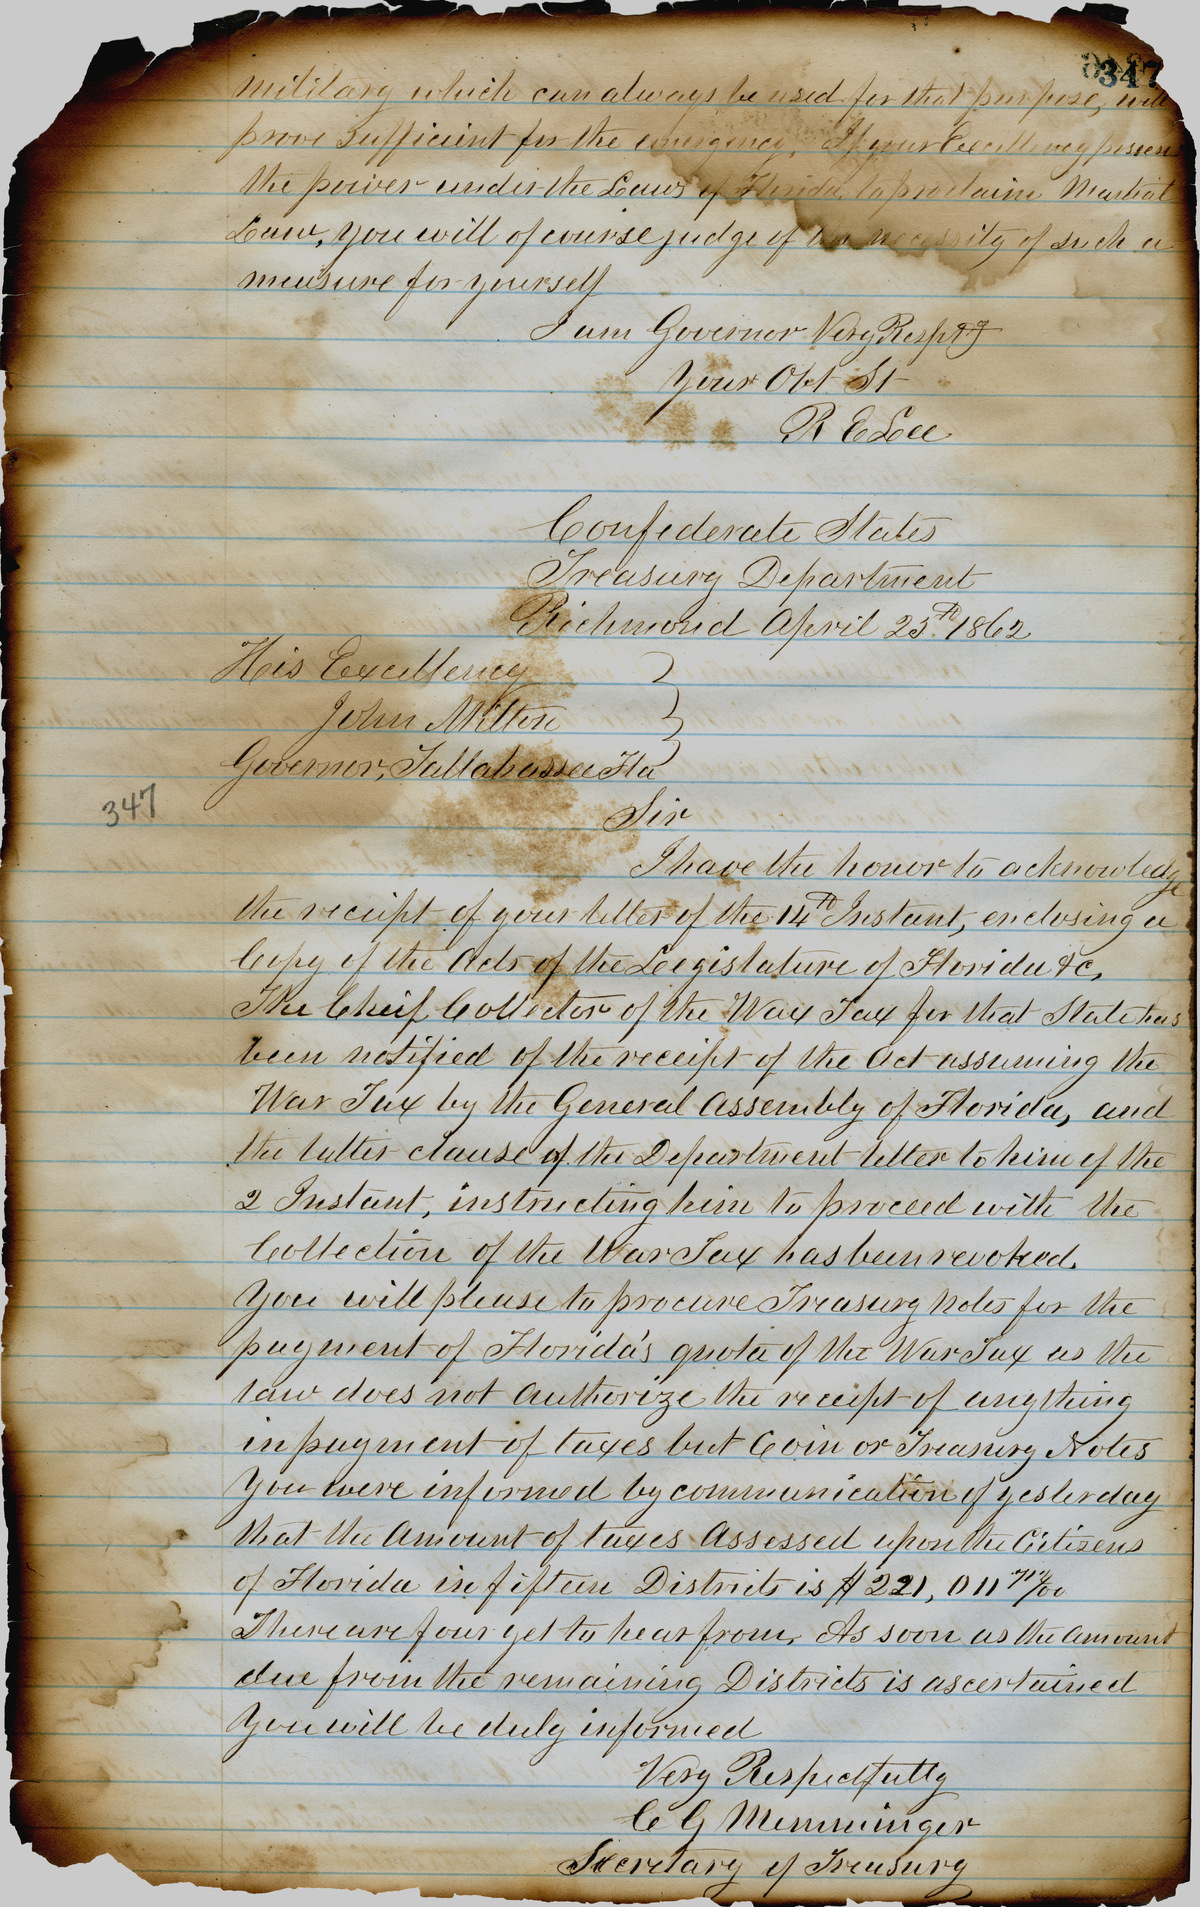 347
military which can always be used for that purpose, will
prove sufficient for the emergency. If your Excellency possess
the power under the Laws of Florida to proclaim Martial
Law, you will of course judge of the necessity of such a
measure for yourself
I am Governor Very Respty
Your Obt St
R E Lee
Confederate States
Treasury Department
Richmond April 25th 1862
His Excellency
John Milton
Governor, Tallahassee Fla
347
Sir
I have the honor to acknowledge
the receipt of your letter of the 14th Instant, enclosing a
Copy of the Acts of the Legislature of Florida &c,
The Cheif Collector of the War Tax for that State has
been notified of the receipt of the Act assuming the
War Tax by the General Assembly of Florida, and
the latter clause of the Department letter to him of the
2 Instant, instructing him to proceed with the
Collection of the War Tax has been revoked.
You will please to procure Treasury Notes for the
payment of Florida's quota of the War Tax as the
law does not Authorize the receipt of anything
in payment of taxes but Coin or Treasury Notes
You were informed by communication of yesterday
that the Amount of taxes Assessed upon the Citizens
of Florida in fifteen Districts is $221,011
There are four yet to hear from. As soon as the amount
due from the remaining Districts is ascertained
You will be duly informed
Very Respectfully
C G Memminger
Secretary of Treasury